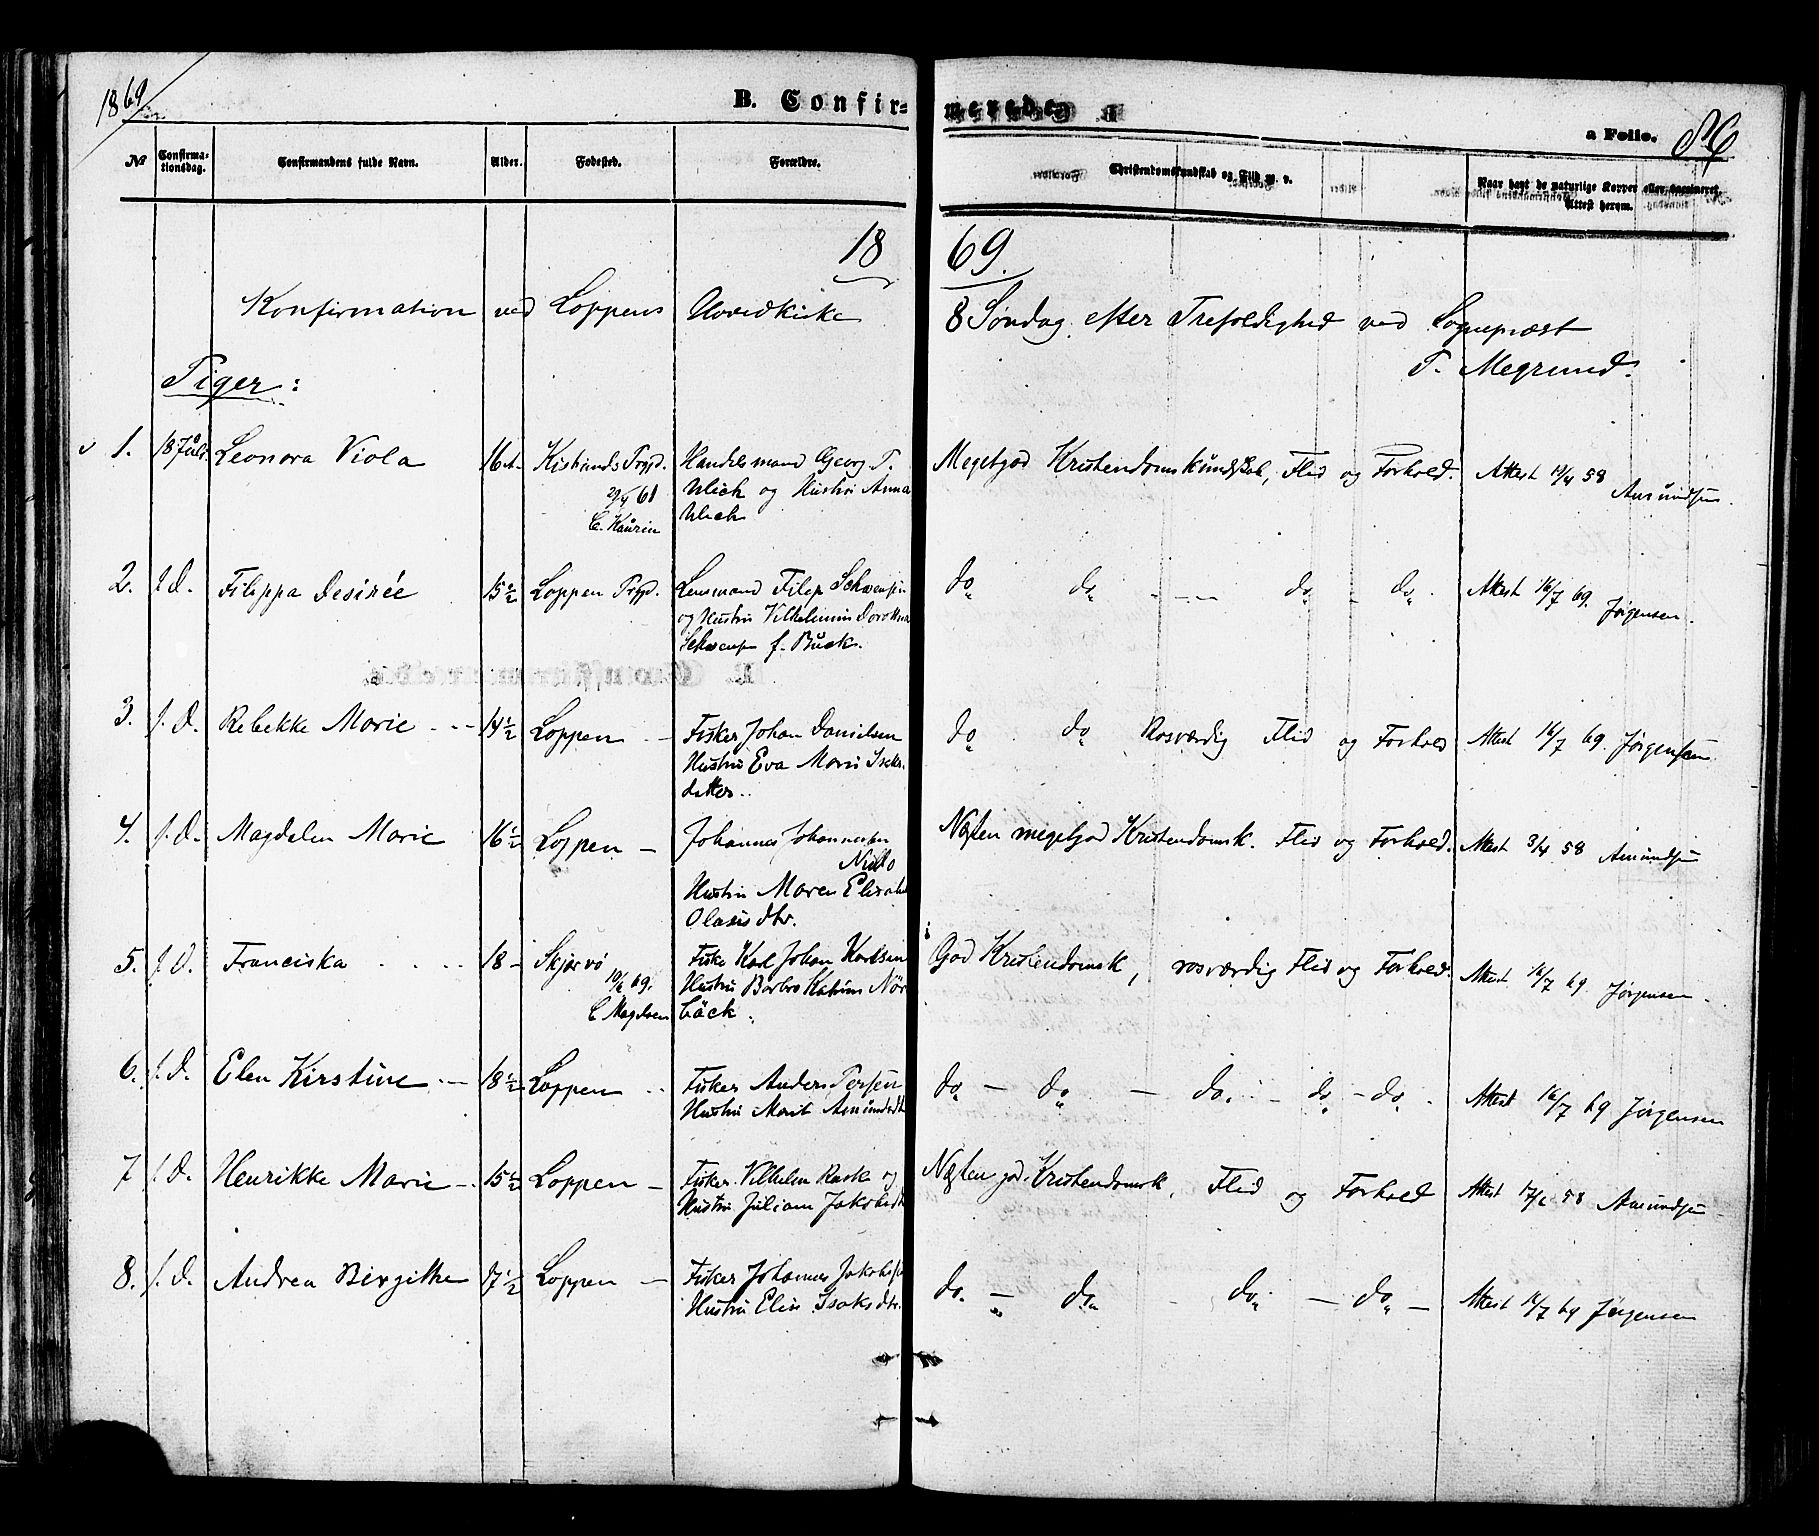 1869
B. Confir- merede a Folio. 86
№ Confirma-tionsdag. Confirmandens fulde Navn. Alder. Fødested. Forældre. Christendomskundskab og Flid m. v. Naar havt de naturlige Kopper eller vaccineret. Attest herom.
18 69.
Konfirmation ved Loppens Hovedkirke 8 Søndag efter Trefoldighed ved Sognepræst
T. Megrund.
Piger:
1. 18 Juli Leonora Viola 16 Kistrands Prgd. Handelsmand Georg T. Megetgod Kristendomskundskab, Flid og Forhold. Attest 58 Amundsen
61 Ulich og Hustru Anna
C. Kaurin Ulich
2. f. D. Filippa Desirée 15½ Loppen Prgd. Lensmand Filip Schwensen do do - - - do - do. Attest 16/7 69. Jørgensen.
og Hustru Vilhelmine Dorothea
f. Buck.
3. f. D. Rebekke Marie 14½ Loppen Fisker Johan Danielsen do do Rosværdig Flid og Forhold Attest 16/7 69. Jørgensen
Hustru Eva Marie Isaks-
datter.
4. f. D. Magdalen Marie 16½ Loppen Johannes Johannessen Næsten megetgod Kristendomsk. Flid og Forhold. Attest 3/4 58 Amundsen
Hustru Maren Elisabe
Olausdtr.
5. f. D. Franciska 18 Skjervø Fisker Karl Johan Karlsen God Kristendomsk, rosværdig Flid og Forhold. Attest 16/7 69 Jørgensen
69. Hustru Barbro Katrine Nor
C Magelsen bäck.
6. f. D. Elen Kirstine 18½ Loppen Fisker Anders Persen do - do - do. - do - do. Attest 16/7 69 Jørgensen
Hustru Marit Amundsdt
7 f. D. Henrikke Marie 15½ Loppen Fisker Vilhelm Rask og Næsten god Kristendomsk. Flid og Forhold Attest 58 Amundsen
Hustru Juliane Jakobsdt
8. f. D. Andrea Birgithe 17½ Loppen Fisker Johannes Jakobsen do. - do - do - do - Attest 16/7 69 Jørgensen
Hustru Elen Isaksdtr.